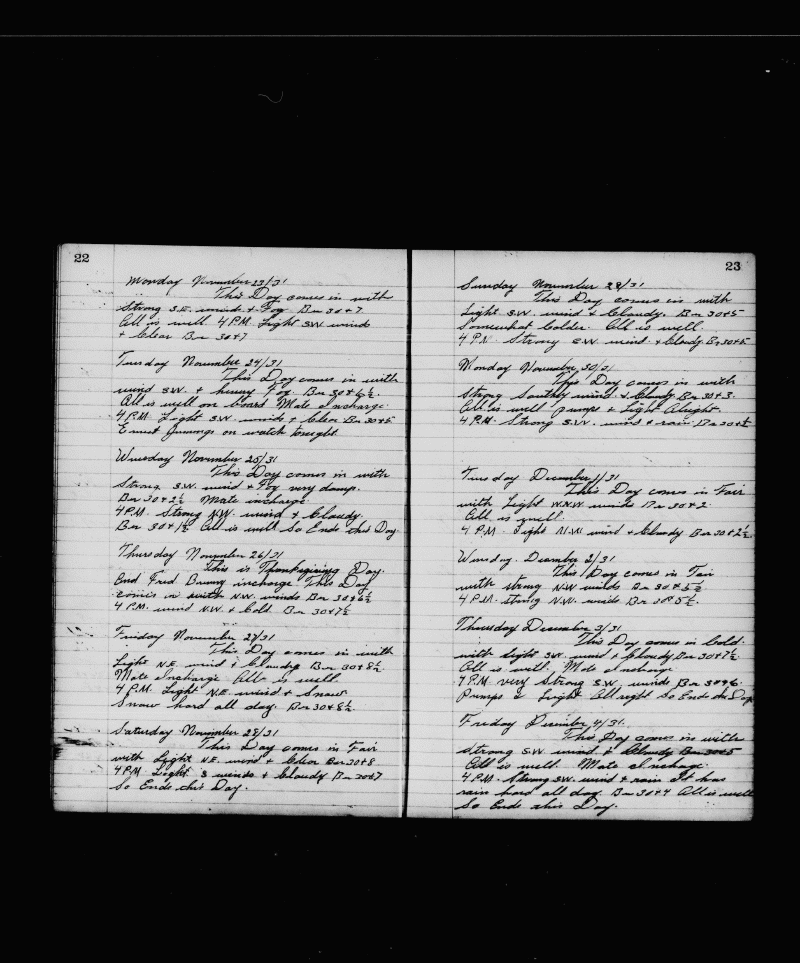 22
Monday November 23/31
This Day comes in with
Strong S.E. wind & Fog Bar 30+7
All is well. 4 P.M. Light S.W. winds
& Clear Bar 30+7
Tuesday November 24/31
This Day comes in with
wind S.W. & heavy Fog Bar 30+6½
All is well on board Mate Incharge
4 P.M. Light S.W. winds & Clear Bar 30+5
Ernest on watch tonight
Wensday November 25/31
This Day comes in with
Strong S.W. wind & Fog very damp.
Bar 30+2½ Mate incharge.
4 P.M. Strong N.W. wind & Cloudy.
Bar 30+1½ All is well So Ends this Day
Thursday November 26/31
This is Thanksgiving Day.
End Fred incharge This Day
comes in with N.W. winds Bar 30+6½
4 P.M. wind N.W. & Cold. Bar 30+7½
Friday November 27/31
This Day comes in with
Light N.E. wind & Cloudy Bar 30+8½
Mate Incharge All is well
4 P.M. Light N.E. wind & Snow
Snow hard all day. Bar 30+8½.
Saturday November 28/31
This Day comes in Fair
with Light N.E. wind & Clear Bar 30+8
4 P.M. Light S winds & Cloudy Bar 30+7
So Ends this Day.
23
Sunday November 29/31
This Day comes in with
Light S.W. wind & Cloudy. Bar 30+5
Somewhat Colder. All is well.
4 P.M. Strong S.W. wind & Cloudy Bar 30+5
Monday November 30/31
This Day comes in with
Strong Southly wind & Cloudy Bar 30+3.
All is well pumps & Light Alright.
4 P.M. Strong S.W. wind & rain Bar 30+½
Tuesday December 1/31
This Day comes in Fair
with Light W.N.W winds Bar 30+2.
All is well.
4 P.M. Light N.W. wind & Cloudy Bar 30+2½
Wensday. December 2/31
This Day comes in Fair
with strong N.W winds Bar 30+5½
4 P.M. strong N.W. winds Bar 30+5½.
Thursday December 3/31
This Day comes in Cold.
with Light S.W. wind & Cloudy Bar 30+7½
All is well. Mate Incharge.
4 P.M. very Strong S.W. winds Bar 30+6.
Pumps & Light All right So Ends this Day
Friday December 4/31.
This Day comes in with
Strong S.W wind & Cloudy Bar 30+5
All is well. Mate Incharge.
4 P.M. Strong S.W. wind & rain It has
rain hard all day Bar 30+4 All is well
So Ends this Day.